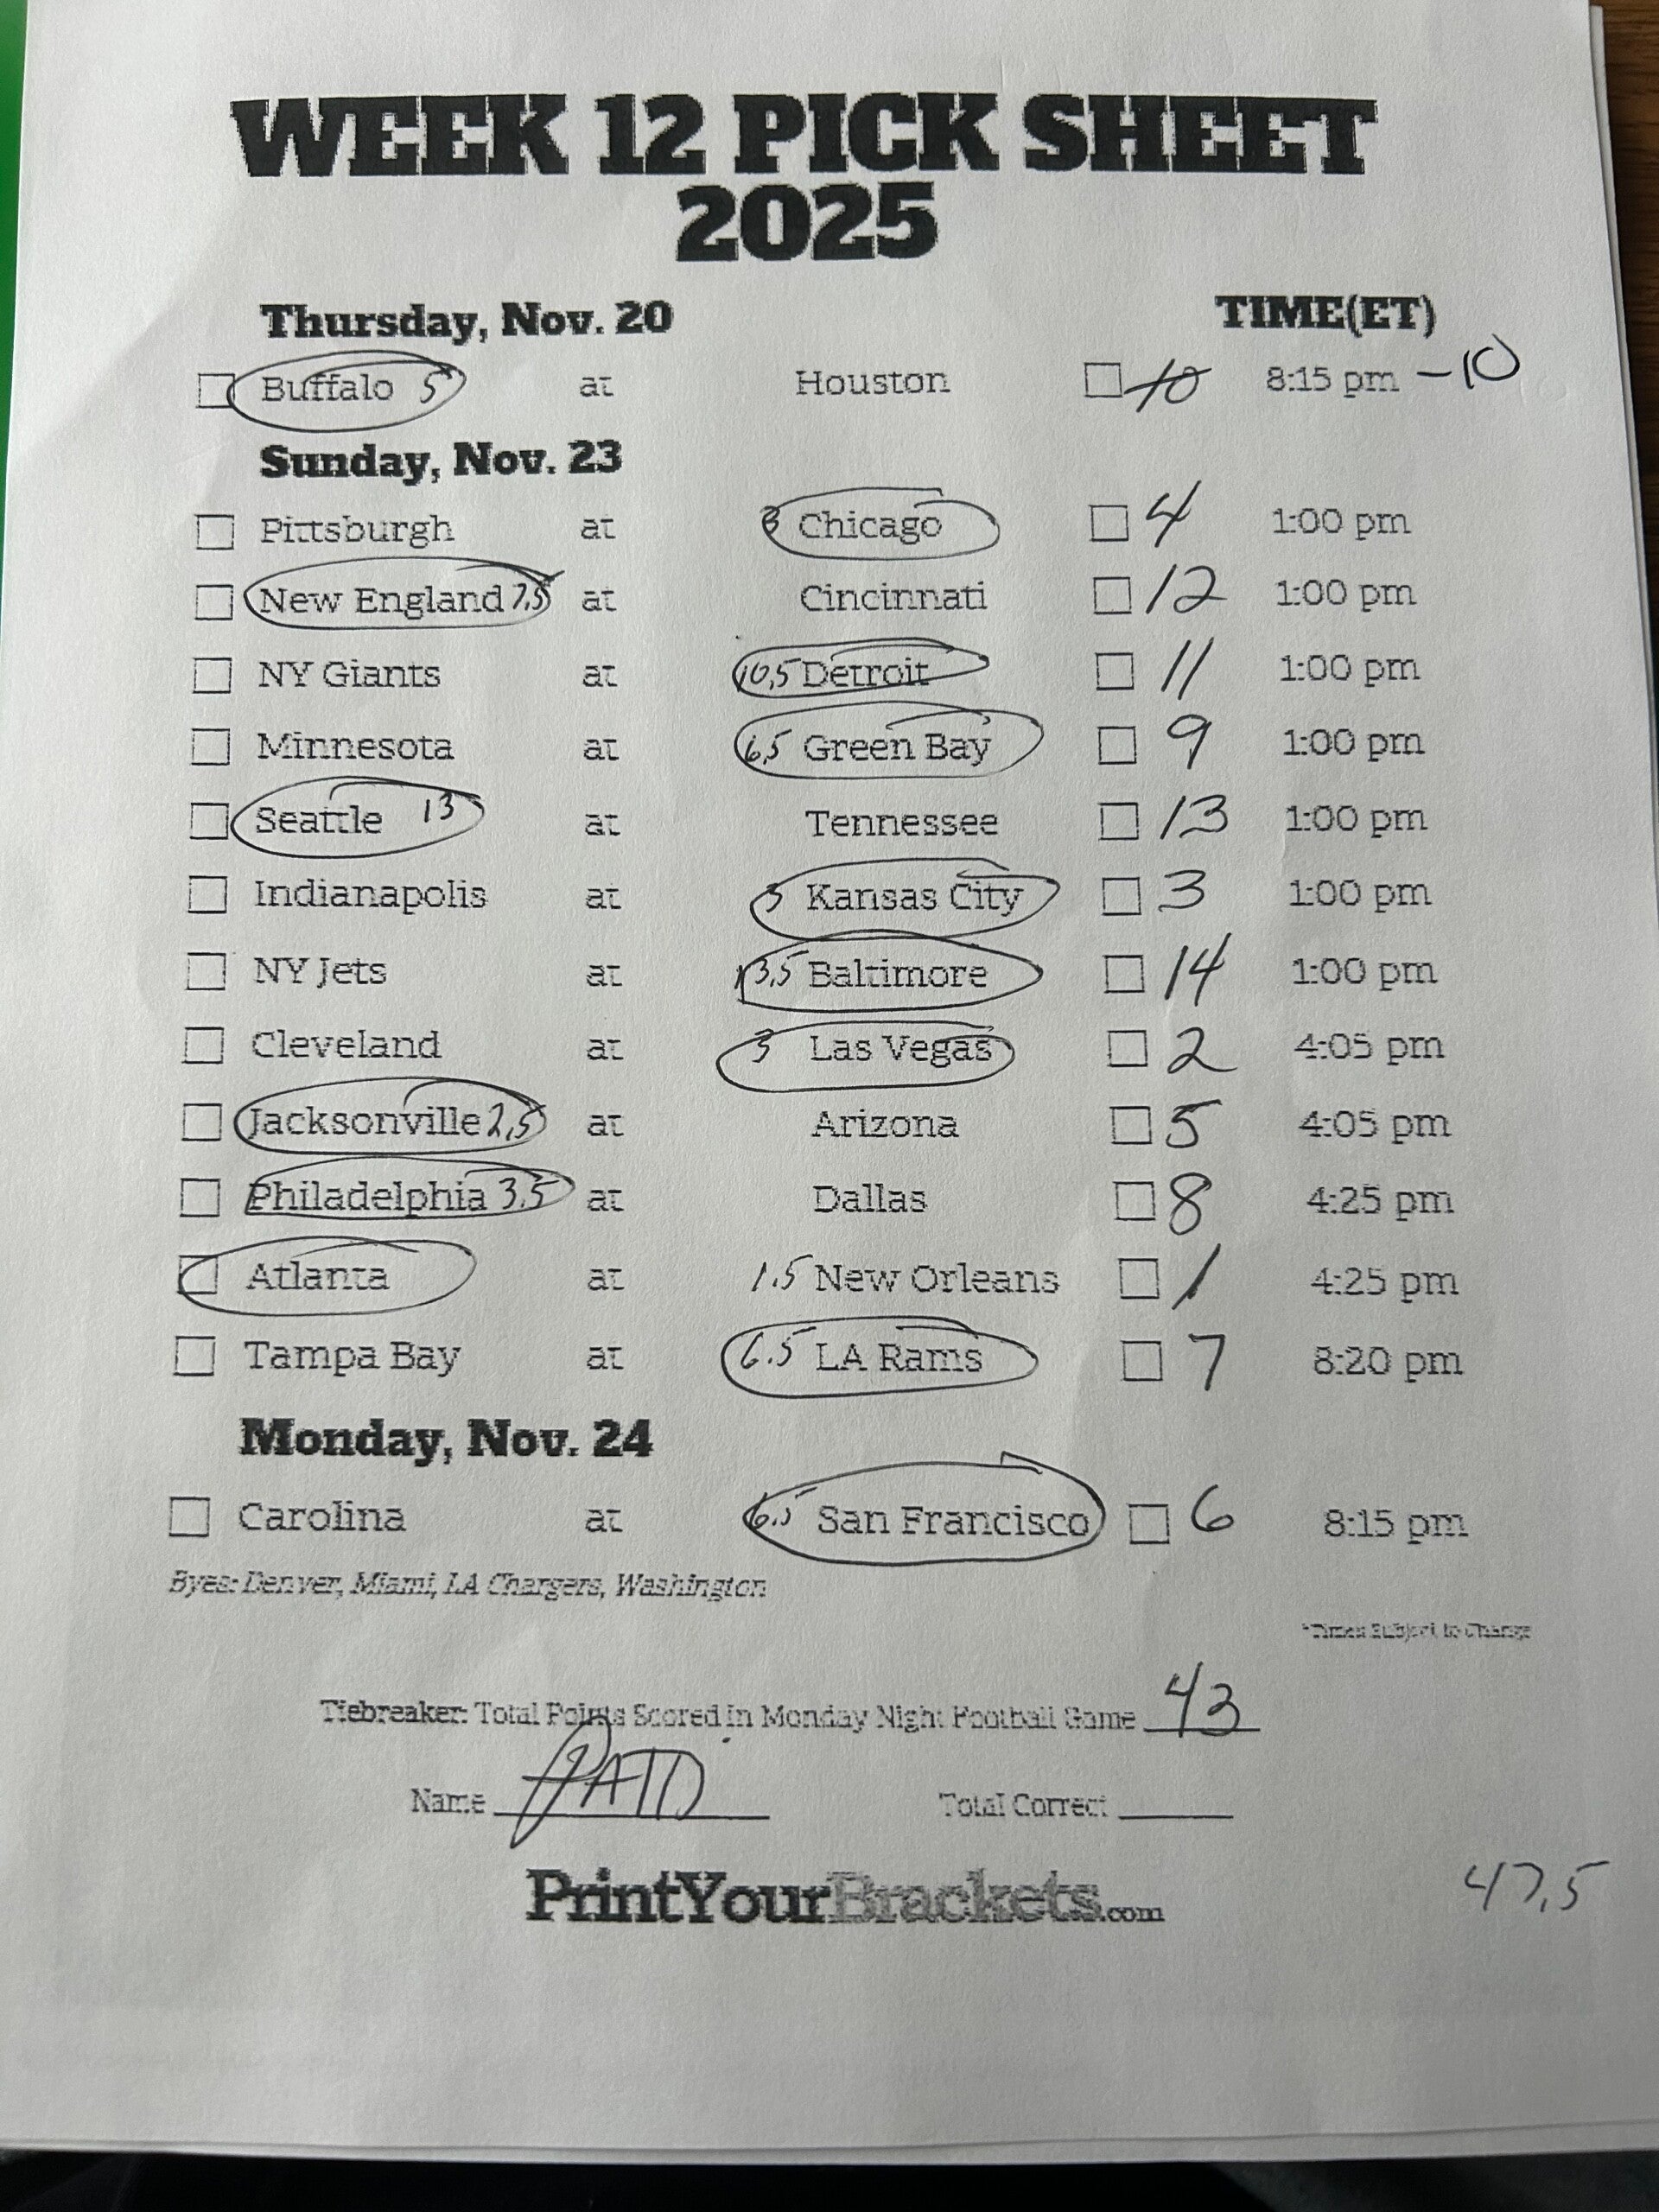 WEEK 12 PICK SHEET
2025
Thursday, Nov. 20 TIME(ET)
Buffalo 5 at Houston 10 8:15 pm -10
Sunday, Nov. 23
Pittsburgh at 3 Chicago 4 1:00 pm
New England 7,5 at Cincinnati 12 1:00 pm
NY Giants at 10,5 Detroit 11 1:00 pm
Minnesota at 6,5 Green Bay 9 1:00 pm
Seattle 13 at Tennessee 13 1:00 pm
Indianapolis at 3 Kansas City 3 1:00 pm
NY Jets at 13,5 Baltimore 14 1:00 pm
Cleveland at 3 Las Vegas 2 4:05 pm
Jacksonville 2,5 at Arizona 5 4:05 pm
Philadelphia 3.5 at Dallas 8 4:25 pm
Atlanta at 1.5 New Orleans 1 4:25 pm
Tampa Bay at 6.5 LA Rams 7 8:20 pm
Monday, Nov. 24
Carolina at 6.5 San Francisco 6 8:15 pm
Byes: Denver, Miami, LA Chargers, Washington
*Times Subject to Change
Tiebreaker: Total Points Scored in Monday Night Football Game 43
Name Total Correct
PrintYourBrackets.com
47,5